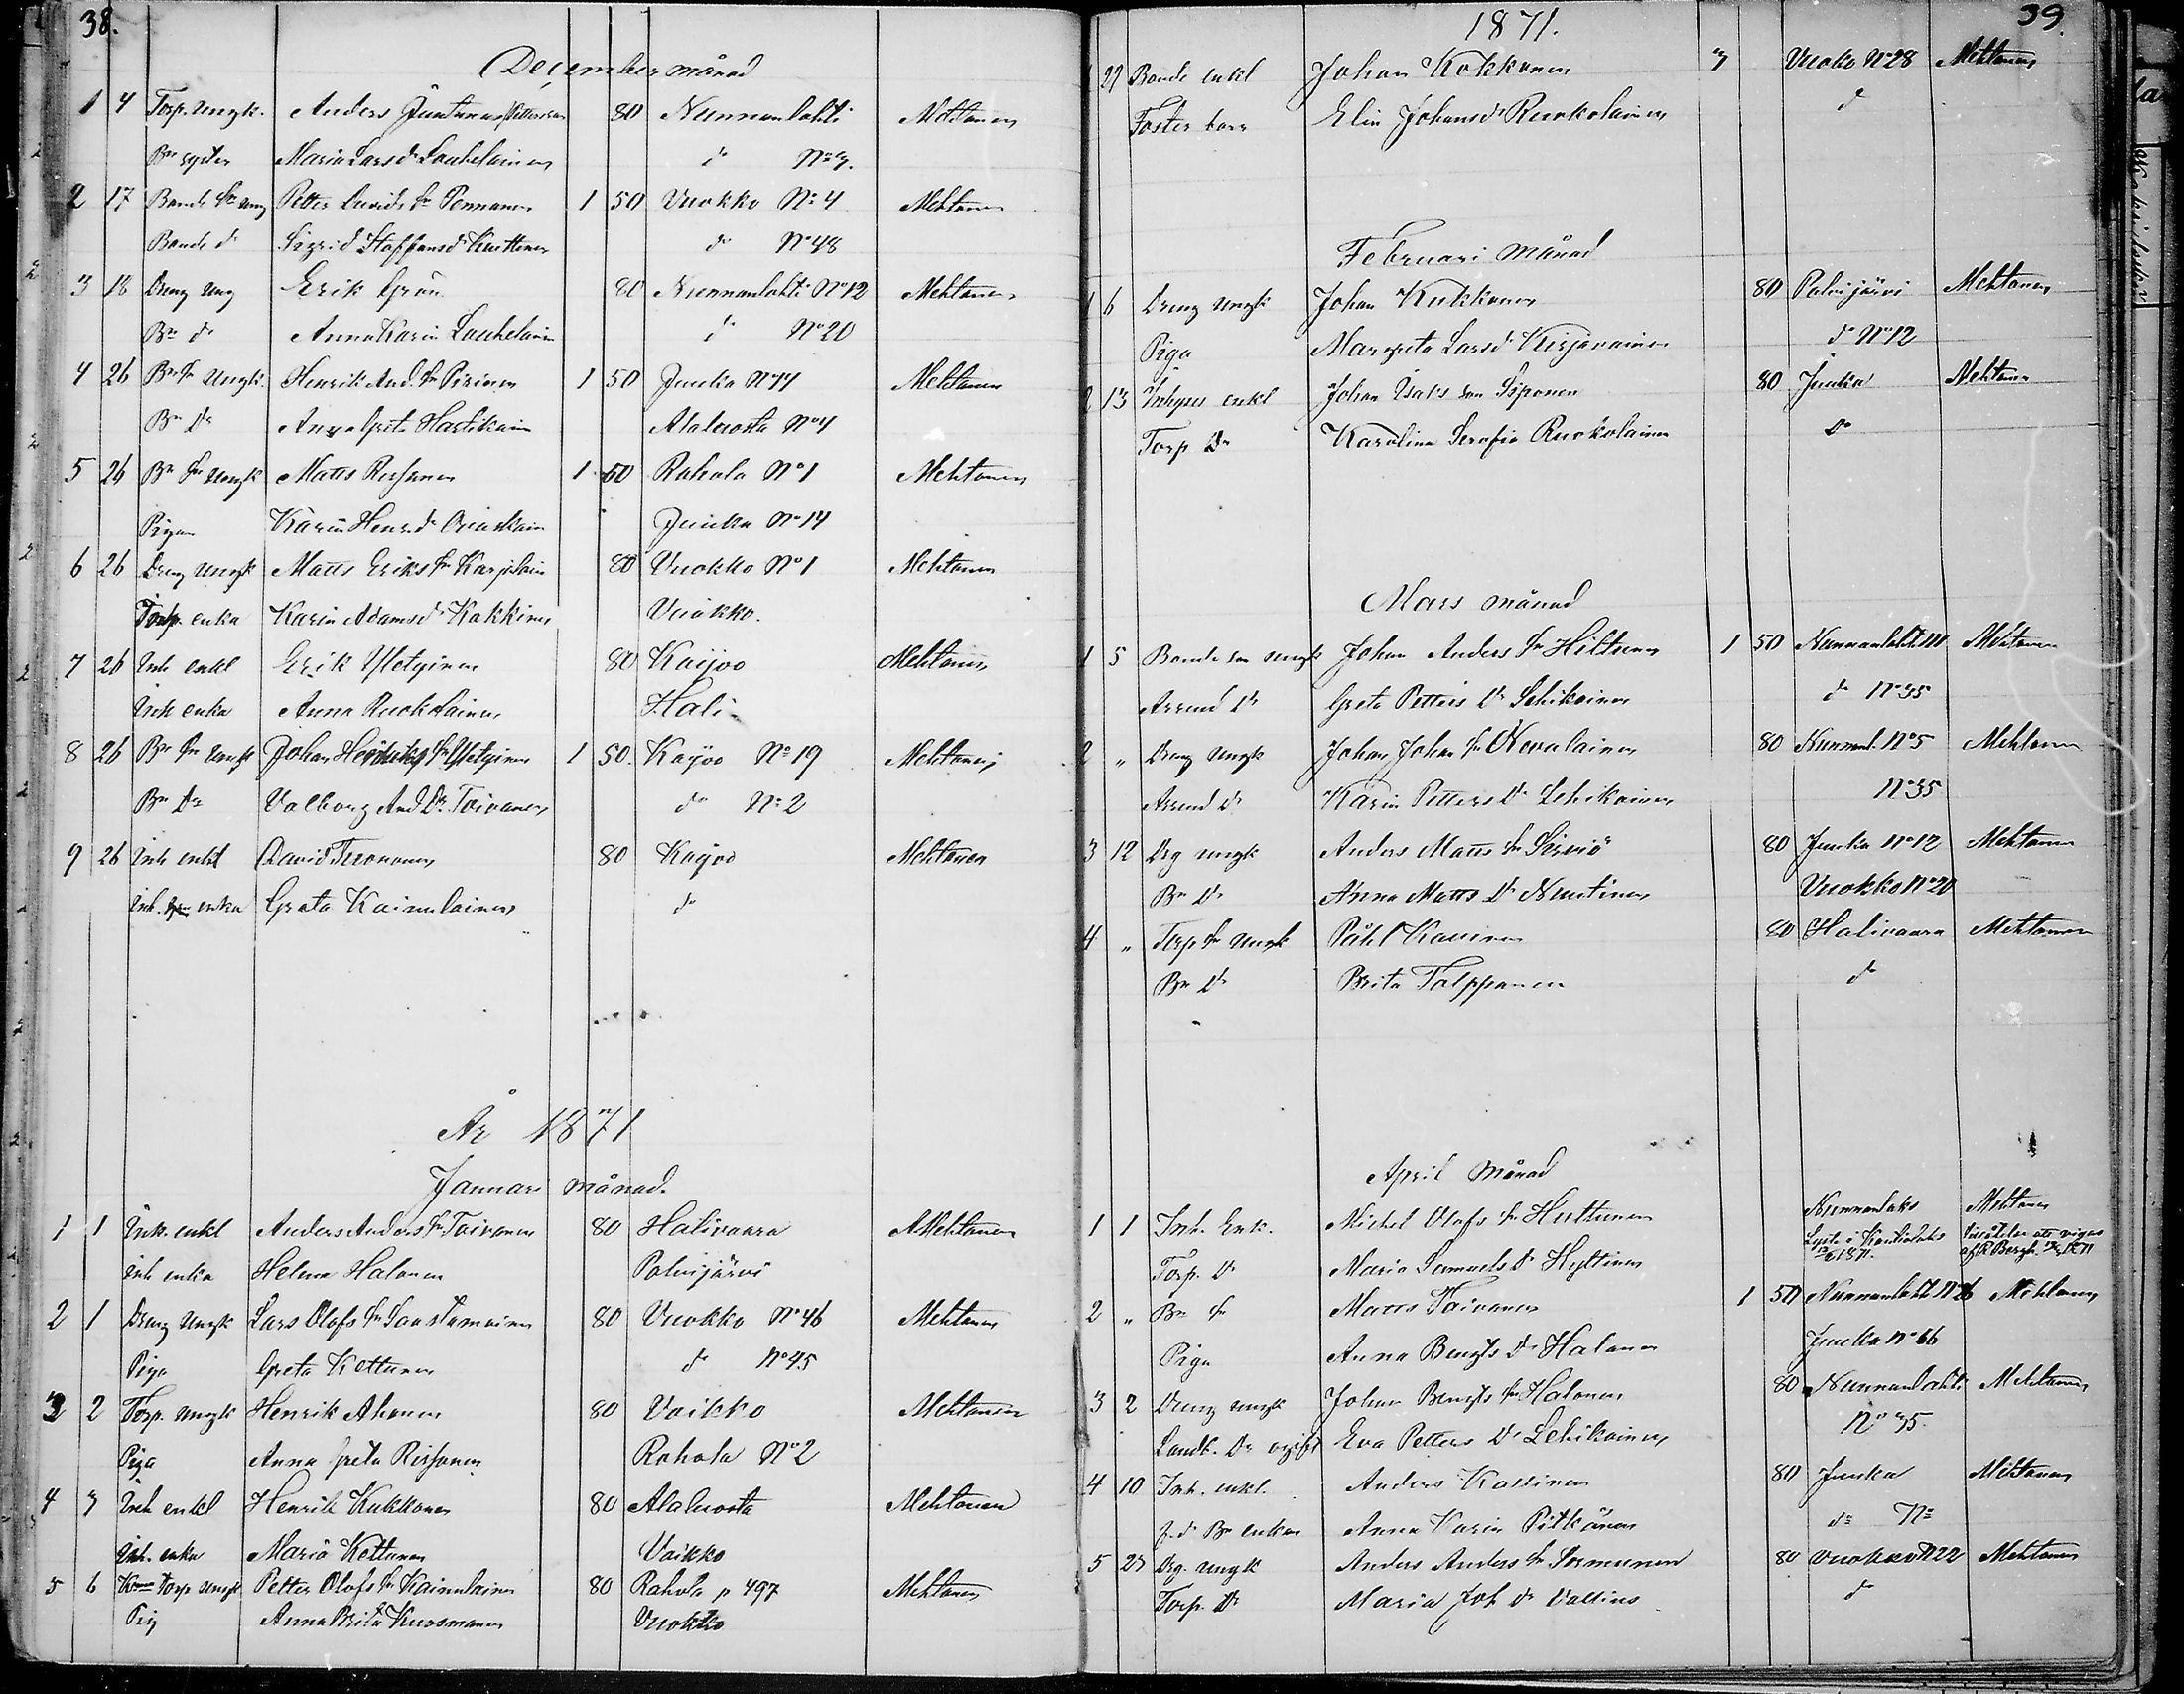 38.
December månad
1 4 Torp. ungk. Anders Juntunen 80 Nunnanlahti Mehtonen
Bn syster Maria Lars dr Laukelainen do No 3.
2 17 Bonde Sn ung Petter Davids Sn Pennanen 1 50 Vuokko No 4 Mehtonen
Bonde dr Sigrid Staffans dr Kuittinen do No 48
3 18 Dreng ung Erik Grön 80 Nunnanlahti No 12 Mehtonen
Bn dr Anna Karin Laukelain do No 20
4 26 Bn Sn Ungk. Henrik And. Sn Pirinen 1 50 Juuka No 14 Mehtonen
Bn Dr Anna Greta Hartikain Alaluosta No 4
5 26 Bn Sn Ungk Matts 1 50 Rahola No 1 Mehtonen
Pigan Karin Henr. dr Juuka No 14
6 26 Dreng ungk Matts Eriks Sn Karjalain 80 Vuokko No 1 Mehtonen
Torp. enka Karin Adams dr Kokkinen Vuokko.
7 26 Inh enkl Erik 80 Kajoo Mehtonen
Inh enka Anna Ruokolainen Hali
8 26 Bn Sn Ungk Johan Henriks Sn 1 50. Kajoo No 19 Mehtonen
Bn Dr Valborg And. Dr Toivanen do No 2
9 26 Inh enkl David Turonen 80 Kajoo Mehtonen
Inh. enka Greta Kainulainen do
År 1871
Januari månad.
1 1 Inh. enkl Anders Anders Sn Toivanen 80 Halivaara Mehtonen
inh enka Helena Halonen Polvijärvi
2 1 Dreng Ungk Lars Olofs Sn Saastamoinen 80 Vuokko No 46 Mehtonen
Piga Greta Kettunen do No 45
3 2 Torp. ungk Henrik Ahonen 80 Vaikko Mehtonen
Piga Anna Greta Rissanen Rahola No 2
4 3 Inh enkl Henrik Kukkonen 80 Alaluosta Mehtonen
Inh. enka Maria Kettunen Vaikko
5 6 torp ungk Petter Olofs Sn Kainulainen 80 Rahola p 497 Mehtonen
Pig Anna Brita Kuosmanen Vuokko
1871. 39.
29 Bonde enkl Johan Kokkonen 3 Vuoko No 28 Mehtonen
Foster barn Elin Johans dr Ruokolainen do
Februari Månad
1 6 Dreng ungk Johan Kukkonen 80 Polvijärvi Mehtonen
Piga Margreta Lars dr Kirjavainen do No 12
2 13 Inhyses enkl Johan Isaks son Siponen 80 Juuka Mehtonen
Torp Dr Karolina Serafia Ruokolainen Do
Mars månad
1 5 Bonde son ungk Johan Anders Sn Hiltunen 1 50 Nunnanlahti Mehtonen
Arrend Dr Greta Petters Dr Lehikoinen do No 35
2 " Dreng ungk Johan Johan Sn Nevalainen 80 Nunnanl. No 5 Mehtonen
Arrend Dr Karin Petters Dr Lehikoinen No 35
3 12 Drg ungk Anders Matts Sn Sirviö 80 Juuka No 12 Mehtonen
Bn Dr Anna Matts Dr Nuutinen Vuokko No 20
4 " Torp Sn Ungk Påhl Kauinen 80 Halivaara Mehtonen
Bn Dr Brita Tolppanen do
April Månad
1 1 Inh. Enk. Michel Olofs Sn Huttunen Nunnanlaks Mehtonen
Torp. Dr Maria Samuels Dr Hyttinen Lyste i Kontiolaks 1871. att viges af R Bergh. 1871
2 " Bn Sn Matts Toivanen 1 50 Nunnanlahti Mehtonen
Piga Anna Bengts Dr Halonen Juuka No 66
3 2 Dreng ungk Johan Bengts Sn Halonen 80 Nunnanlahti Mehtonen
Landb. Dr ogift Eva Petters Dr Lehikoinen No 35.
4 10 Inh. enkl. Anders Kassinen 80 Juuka Mehtonen
f.d. Bn enkan Anna Karin Pitkänen do No
5 23 Drg. ungk Anders Anders Sn Sormunen 80 Vuokko No 22 Mehtonen
Torp. Dr Maria Joh Dr Vallius do